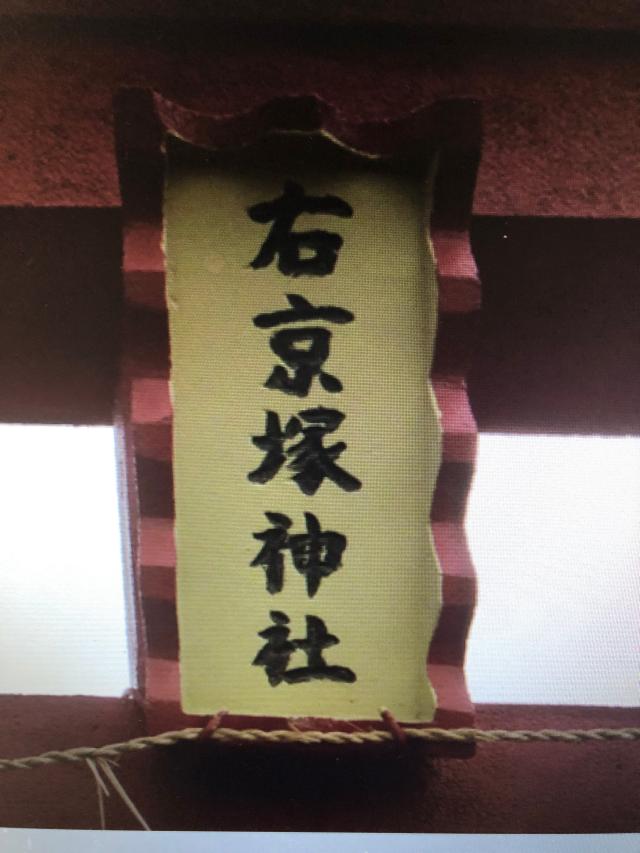 右京塚神社